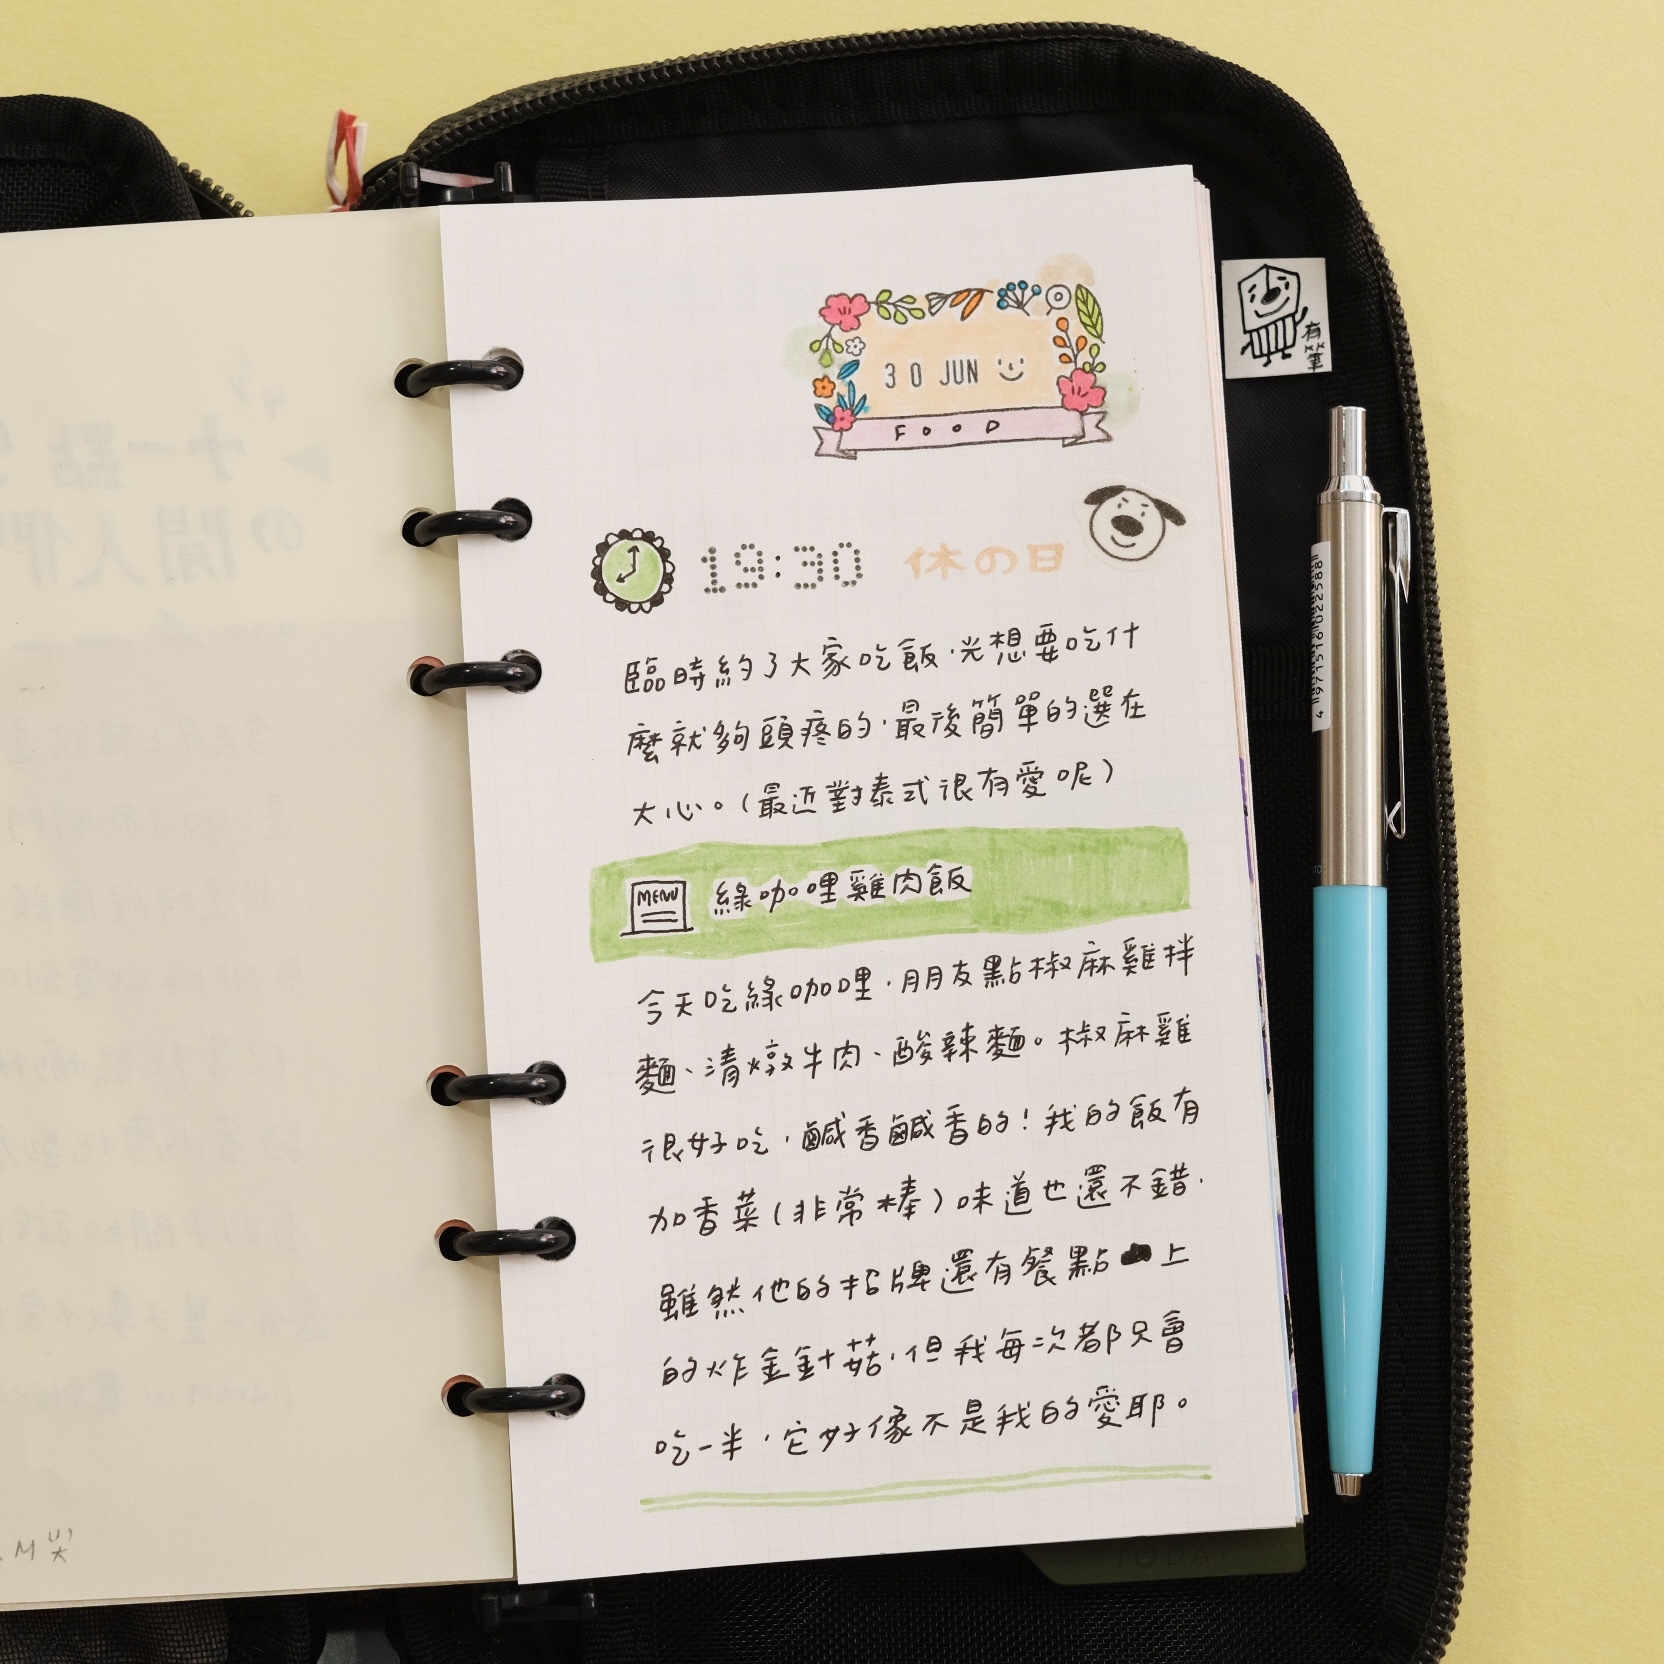 30 JUN
FOOD
有筆
19:30 休の日
臨時約了大家吃飯,光想要吃什
麼就夠頭疼的,最後簡單的選在
大心。(最近對泰式很有愛呢)
MENU 綠咖哩雞肉飯
今天吃綠咖哩,朋友點椒麻雞拌
麵、清燉牛肉、酸辣麵。椒麻雞
很好吃,鹹香鹹香的!我的飯有
加香菜(非常棒)味道也還不錯,
雖然他的招牌還有餐點上
的炸金針菇,但我每次都只會
吃一半,它好像不是我的愛耶。
TODAY
4 971516 022588